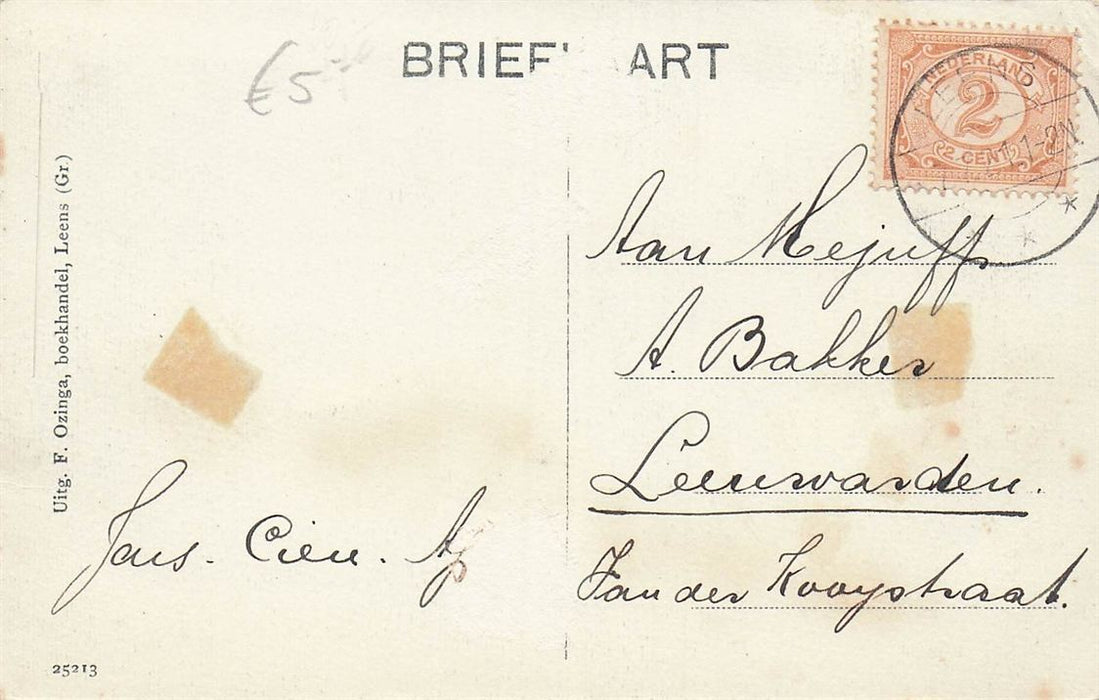 BRIEF ART
€5
NEDERLAND
2
2 CENT
Uitg. F. Ozinga, boekhandel, Leens (Gr.)
Aan Mejuff
A. Bakker
Leeuwarden.
Van der Kooystraat.
Jans. Cien.
25213